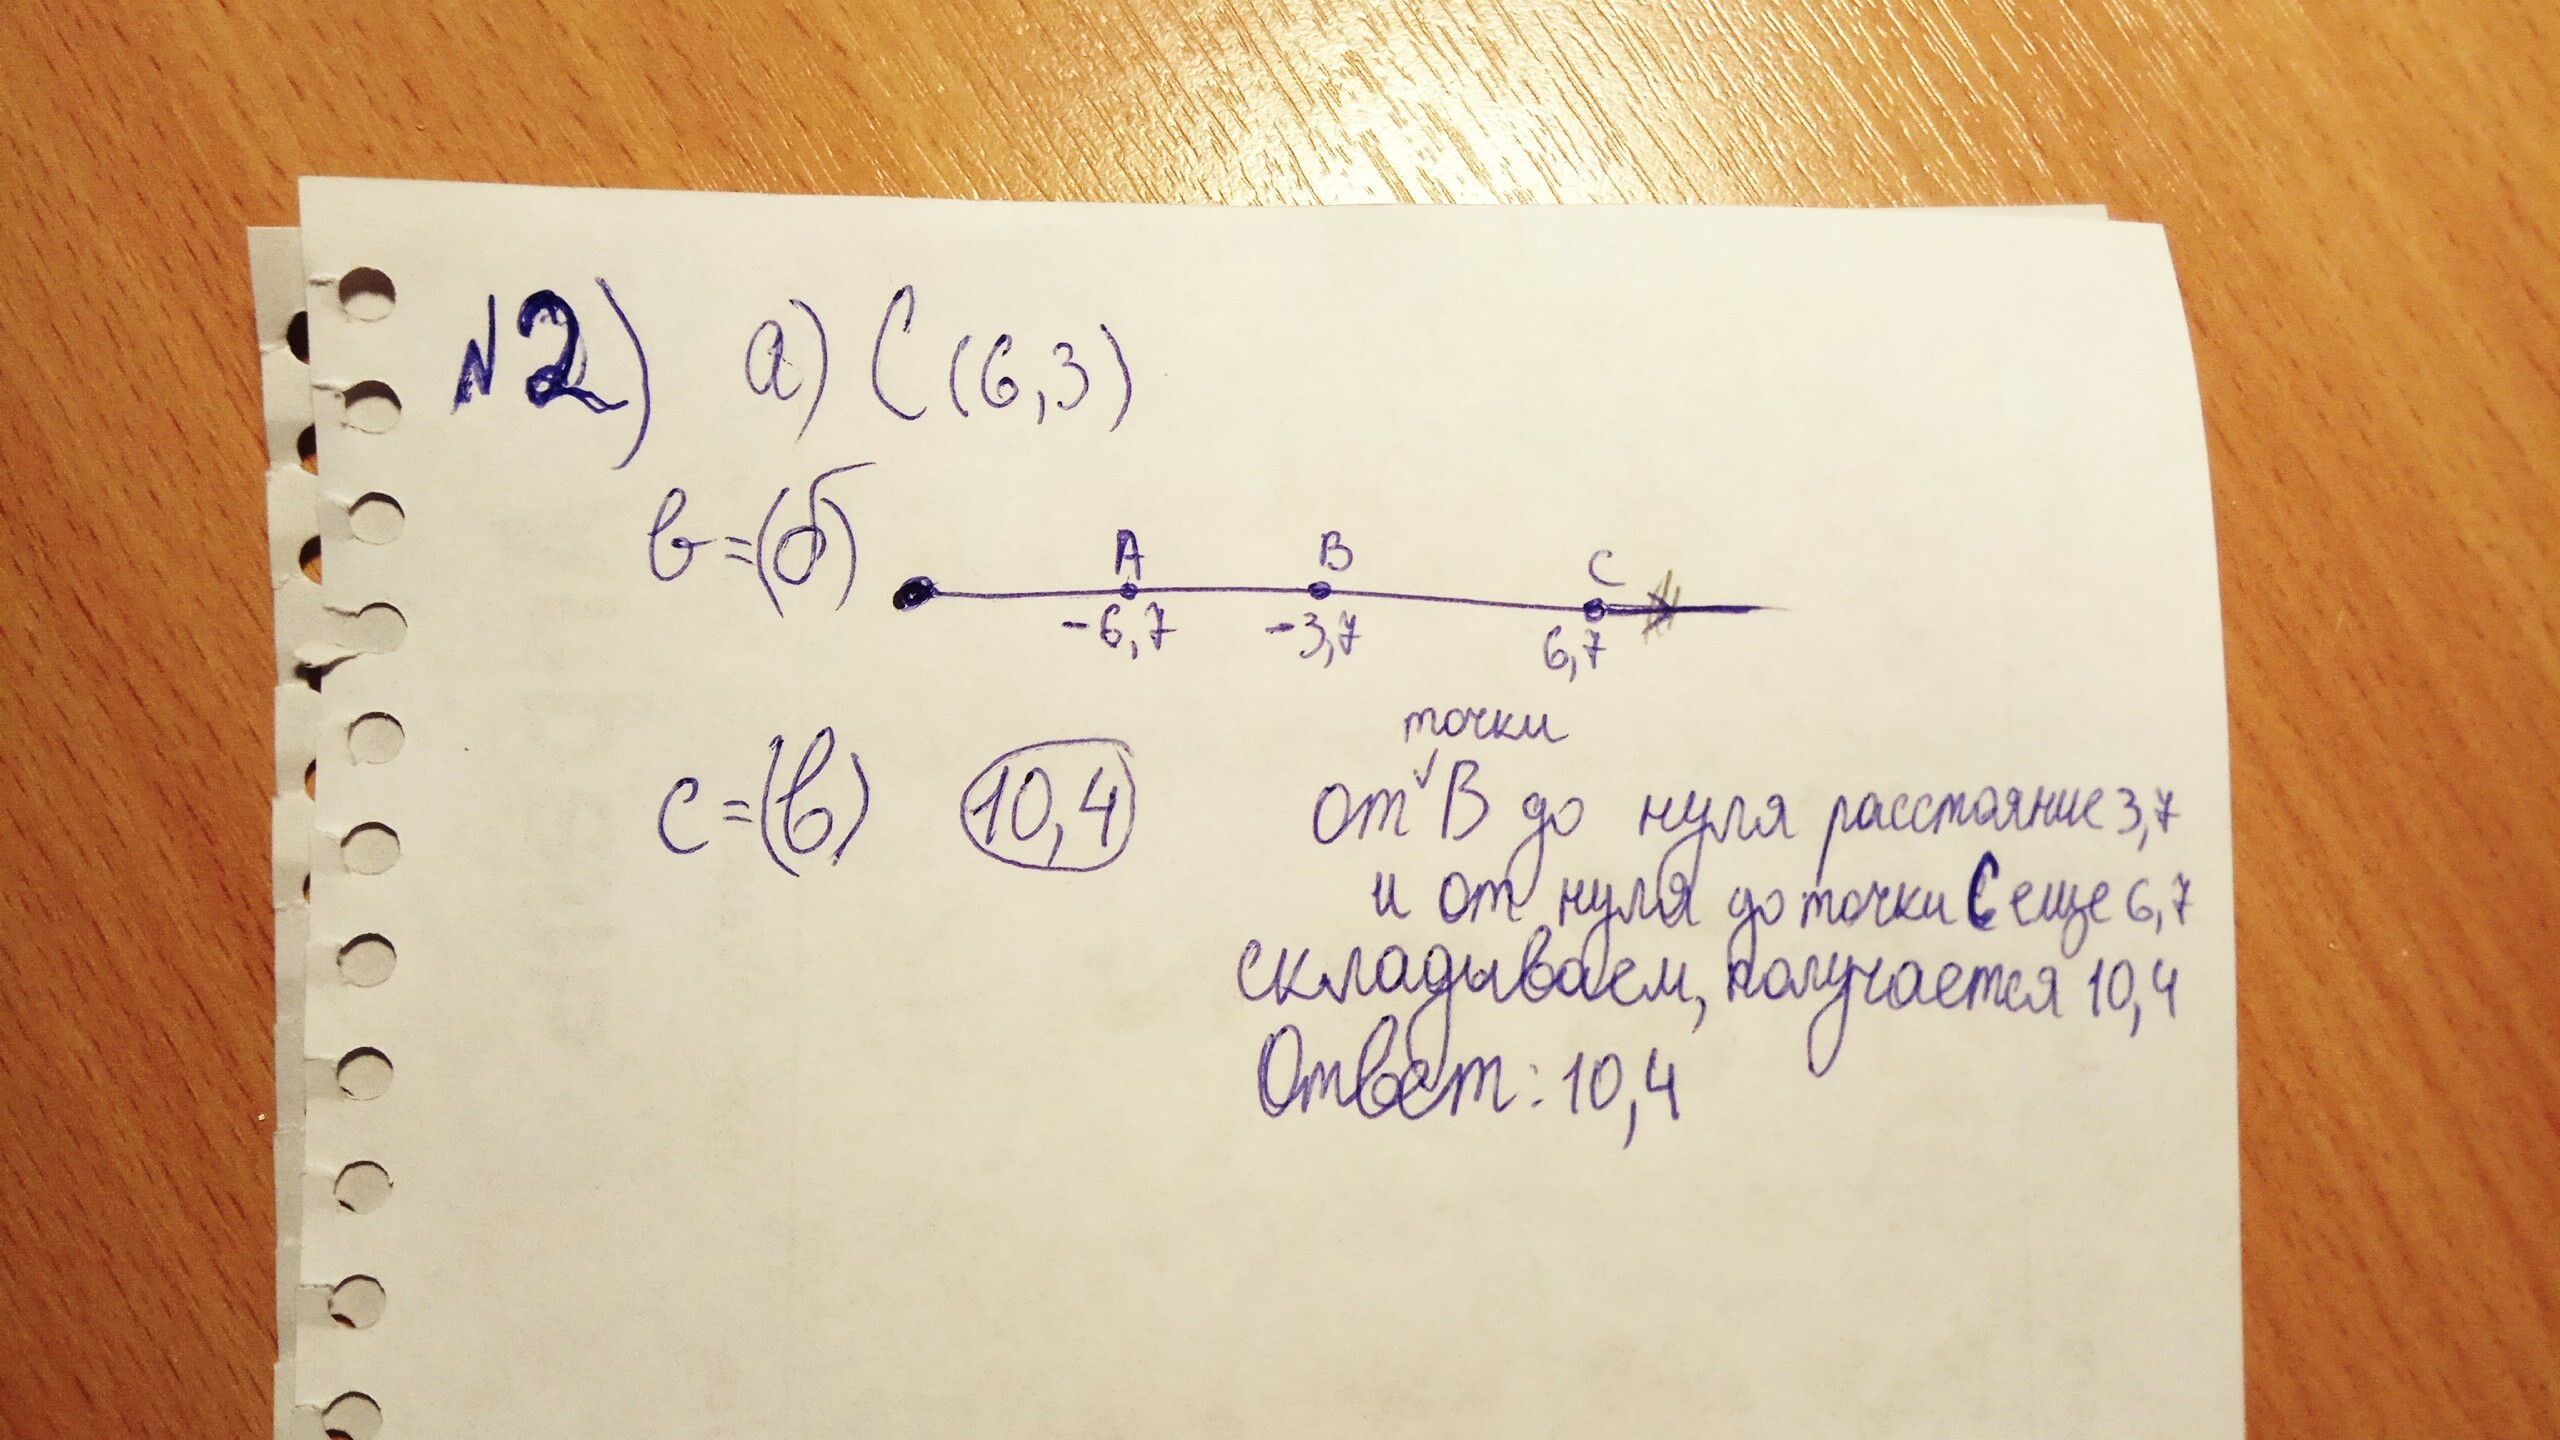 №2) а) С (6,3)
b=(б)
A B C
-6,7 -3,7 6,7
c=(в) 10,4
точки
от В до нуля расстояние 3,7
и от нуля до точки С еще 6,7
складываем, получается 10,4
Ответ: 10,4